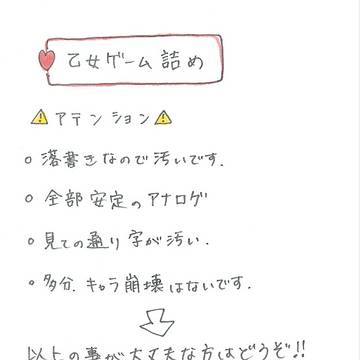 乙女ゲーム詰め
⚠アテンション⚠
○落書きなので汚いです.
○全部安定のアナログ
○見ての通り字が汚い.
○多分.キャラ崩壊はないです.
以上の事が大丈夫な方はどうぞ!!